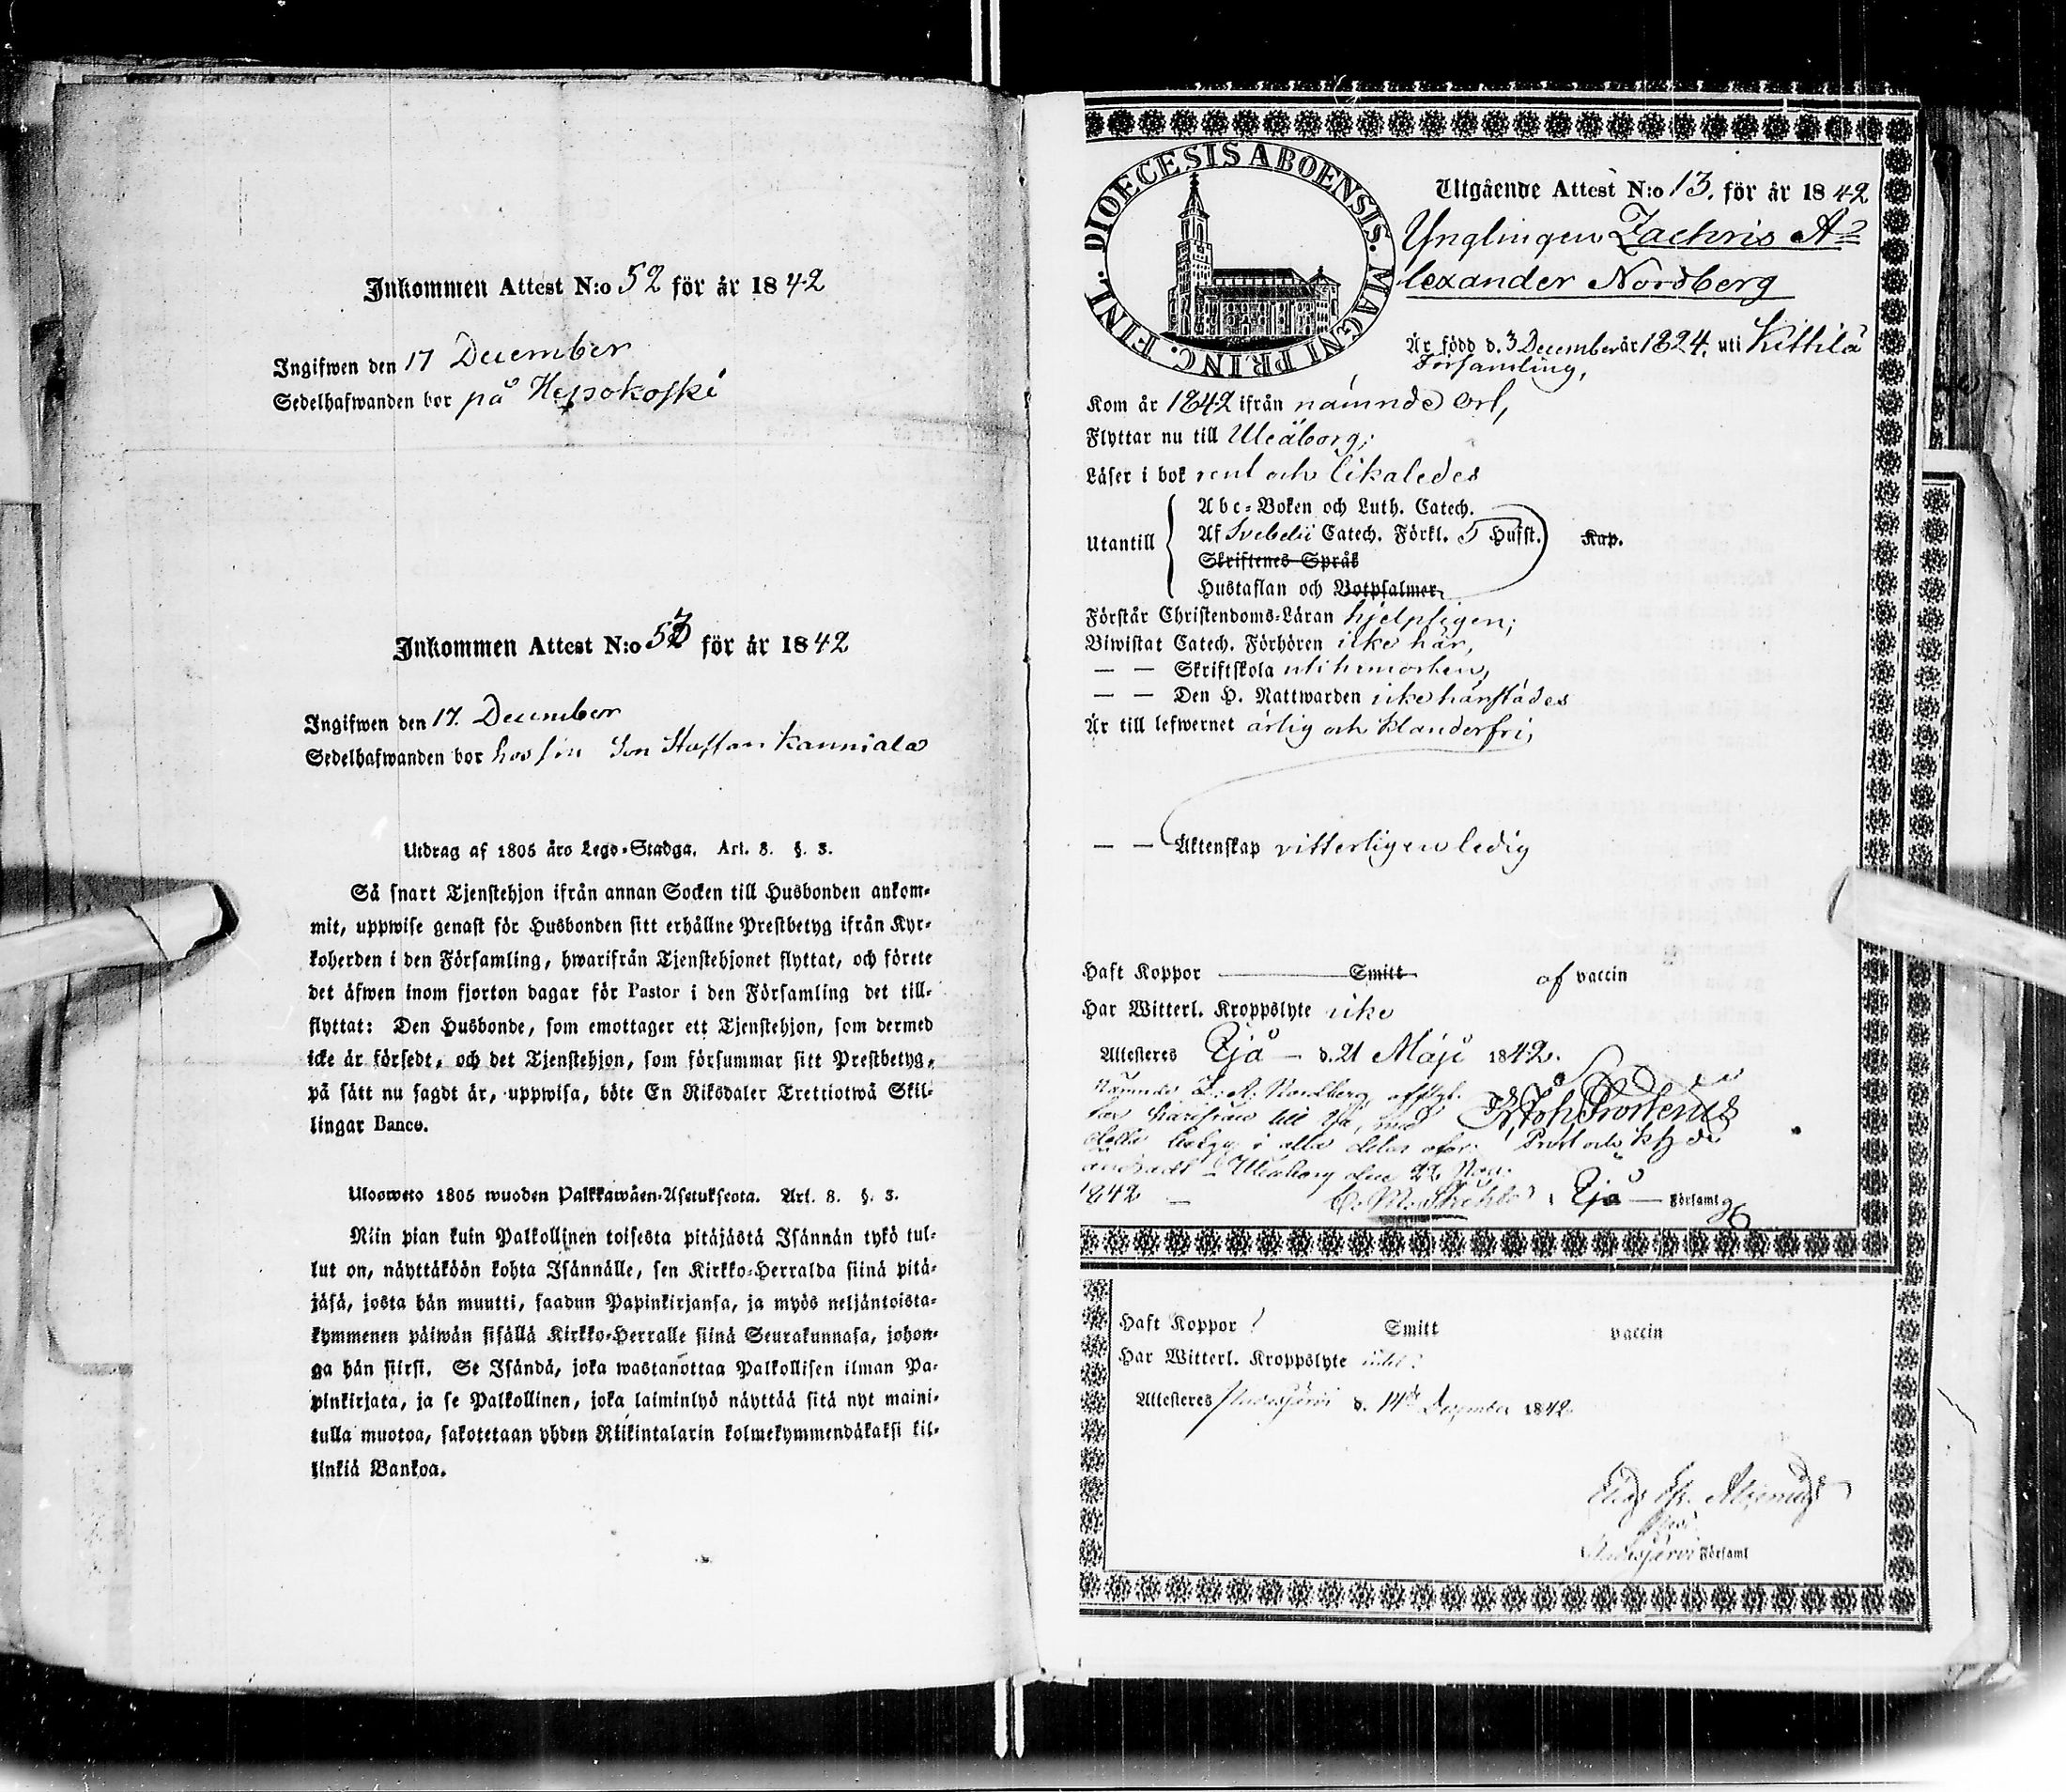 Inkommen Attest N:o 52 för år 1842
Ingifwen den 17 December
Sedelhafwanden bor på
Inkommen Attest N:o 53 för år 1842
Ingifwen den 17. December
Sedelhafwanden bor hos sin Son Staffan Kanniala
Utdrag af 1805 års Lego-Stadga. Art. 8. §. 3.
Så snart Tjenstehjon ifrån annan Socken till Husbonden ankom-
mit, uppwise genast för Husbonden sitt erhållne Prestbetyg ifrån Kyr-
koherden i den Församling, hwarifrån Tjenstehjonet flyttat, och förete
det äfwen inom fjorton dagar för Pastor i den Församling det till-
flyttat: Den Husbonde, som emottager ett Tjenstehjon, som dermed
icke är försedt, och det Tjenstehjon, som försummar sitt Prestbetyg,
på sätt nu sagdt är, uppwisa, böte En Riksdaler Trettiotwå Skil-
lingar Banco.
Uloswето 1805 wuoden Palkkawäen-Asetuksesta. Art. 8. §. 3.
Niin pian kuin Palkollinen toisesta pitäjästä Isännän tykö tul-
lut on, näyttäköön kohta Isännälle, sen Kirkko-Herralda siinä pitä-
jäsä, josta hän muutti, saadun Papinkirjansa, ja myös neljäntoista-
kymmenen päiwän sisällä Kirkko-Herralle siinä Seurakunnasa, johon-
ga hän siirsi. Se Isändä, joka wastanottaa Palkollisen ilman Pa-
pinkirjata, ja se Palkollinen, joka laiminlyö näyttää sitä nyt maini-
tulla muotoa, sakotetaan yhden Riikintalarin kolmekymmendäkaksi kil-
linkiä Bankoa.
DIOECESIS ABOENSIS. MAGNI PRINC. FINL.
Utgående Attest N:o 13. för år 1842
Ynglingen Zachris A-
lexander Nordberg
Är född d. 3 December år 1824. uti Kittilä
Församling,
Kom år 1842 ifrån nämnde ort,
Flyttar nu till Uleåborg;
Läser i bok rent och likaledes
Utantill
Abc-Boken och Luth. Catech.
Af Svebelii Catech. Förkl. 5 Hufst. Kap.
Skriftenes Språk
Hustaflan och Botpsalmer
Förstår Christendoms-Läran hjelpligen;
Biwistat Catech. Förhören icke här,
— — Skriftskola uti hemorten,
— — Den H. Nattwarden icke härstädes
Är till lefwernet ärlig och klanderfri,
— — Äktenskap vitterligen ledig
Haft Koppor Smitt af vaccin
Har Witterl. Kroppslyte icke
Attesteres Ijå d. 21 Maji 1842.
Nämnde Z. A. Nordberg
Uleåborg den
1842
i Ijå Församlg
Haft Koppor ? Smitt vaccin
Har Witterl. Kroppslyte
Attesteres Pudasjärvi d. 14de December 1842
Pudasjärvi Församl